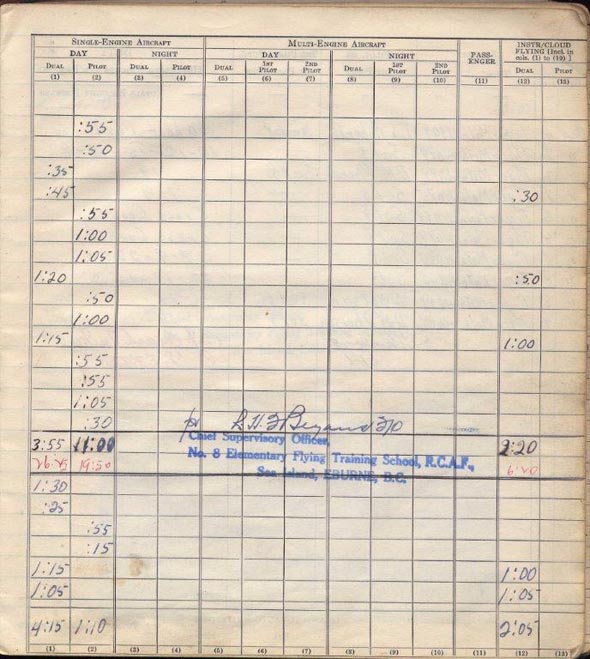 SINGLE-ENGINE AIRCRAFT MULTI-ENGINE AIRCRAFT PASS-ENGER INSTR/CLOUD FLYING [Incl. in cols. (1) to (10) ]
DAY NIGHT DAY NIGHT
DUAL PILOT DUAL PILOT DUAL 1ST PILOT 2ND PILOT DUAL 1ST PILOT 2ND PILOT DUAL PILOT
(1) (2) (3) (4) (5) (6) (7) (8) (9) (10) (11) (12) (13)
:55
:50
:35
:45 :30
:55
1:00
1:05
1:20 :50
:50
1:00
1:15 1:00
:55
:55
1:05
:30
Chief Supervisory Officer,
3:55 11:00 2:20
No. 8 Elementary Flying Training School, R.C.A.F.,
26:25 19:50 6:20
Sea Island, EBURNE, B.C.
1:30
:25
:55
:15
1:15 1:00
1:05 1:05
4:15 1:10 2:05
(1) (2) (3) (4) (5) (6) (7) (8) (9) (10) (11) (12) (13)